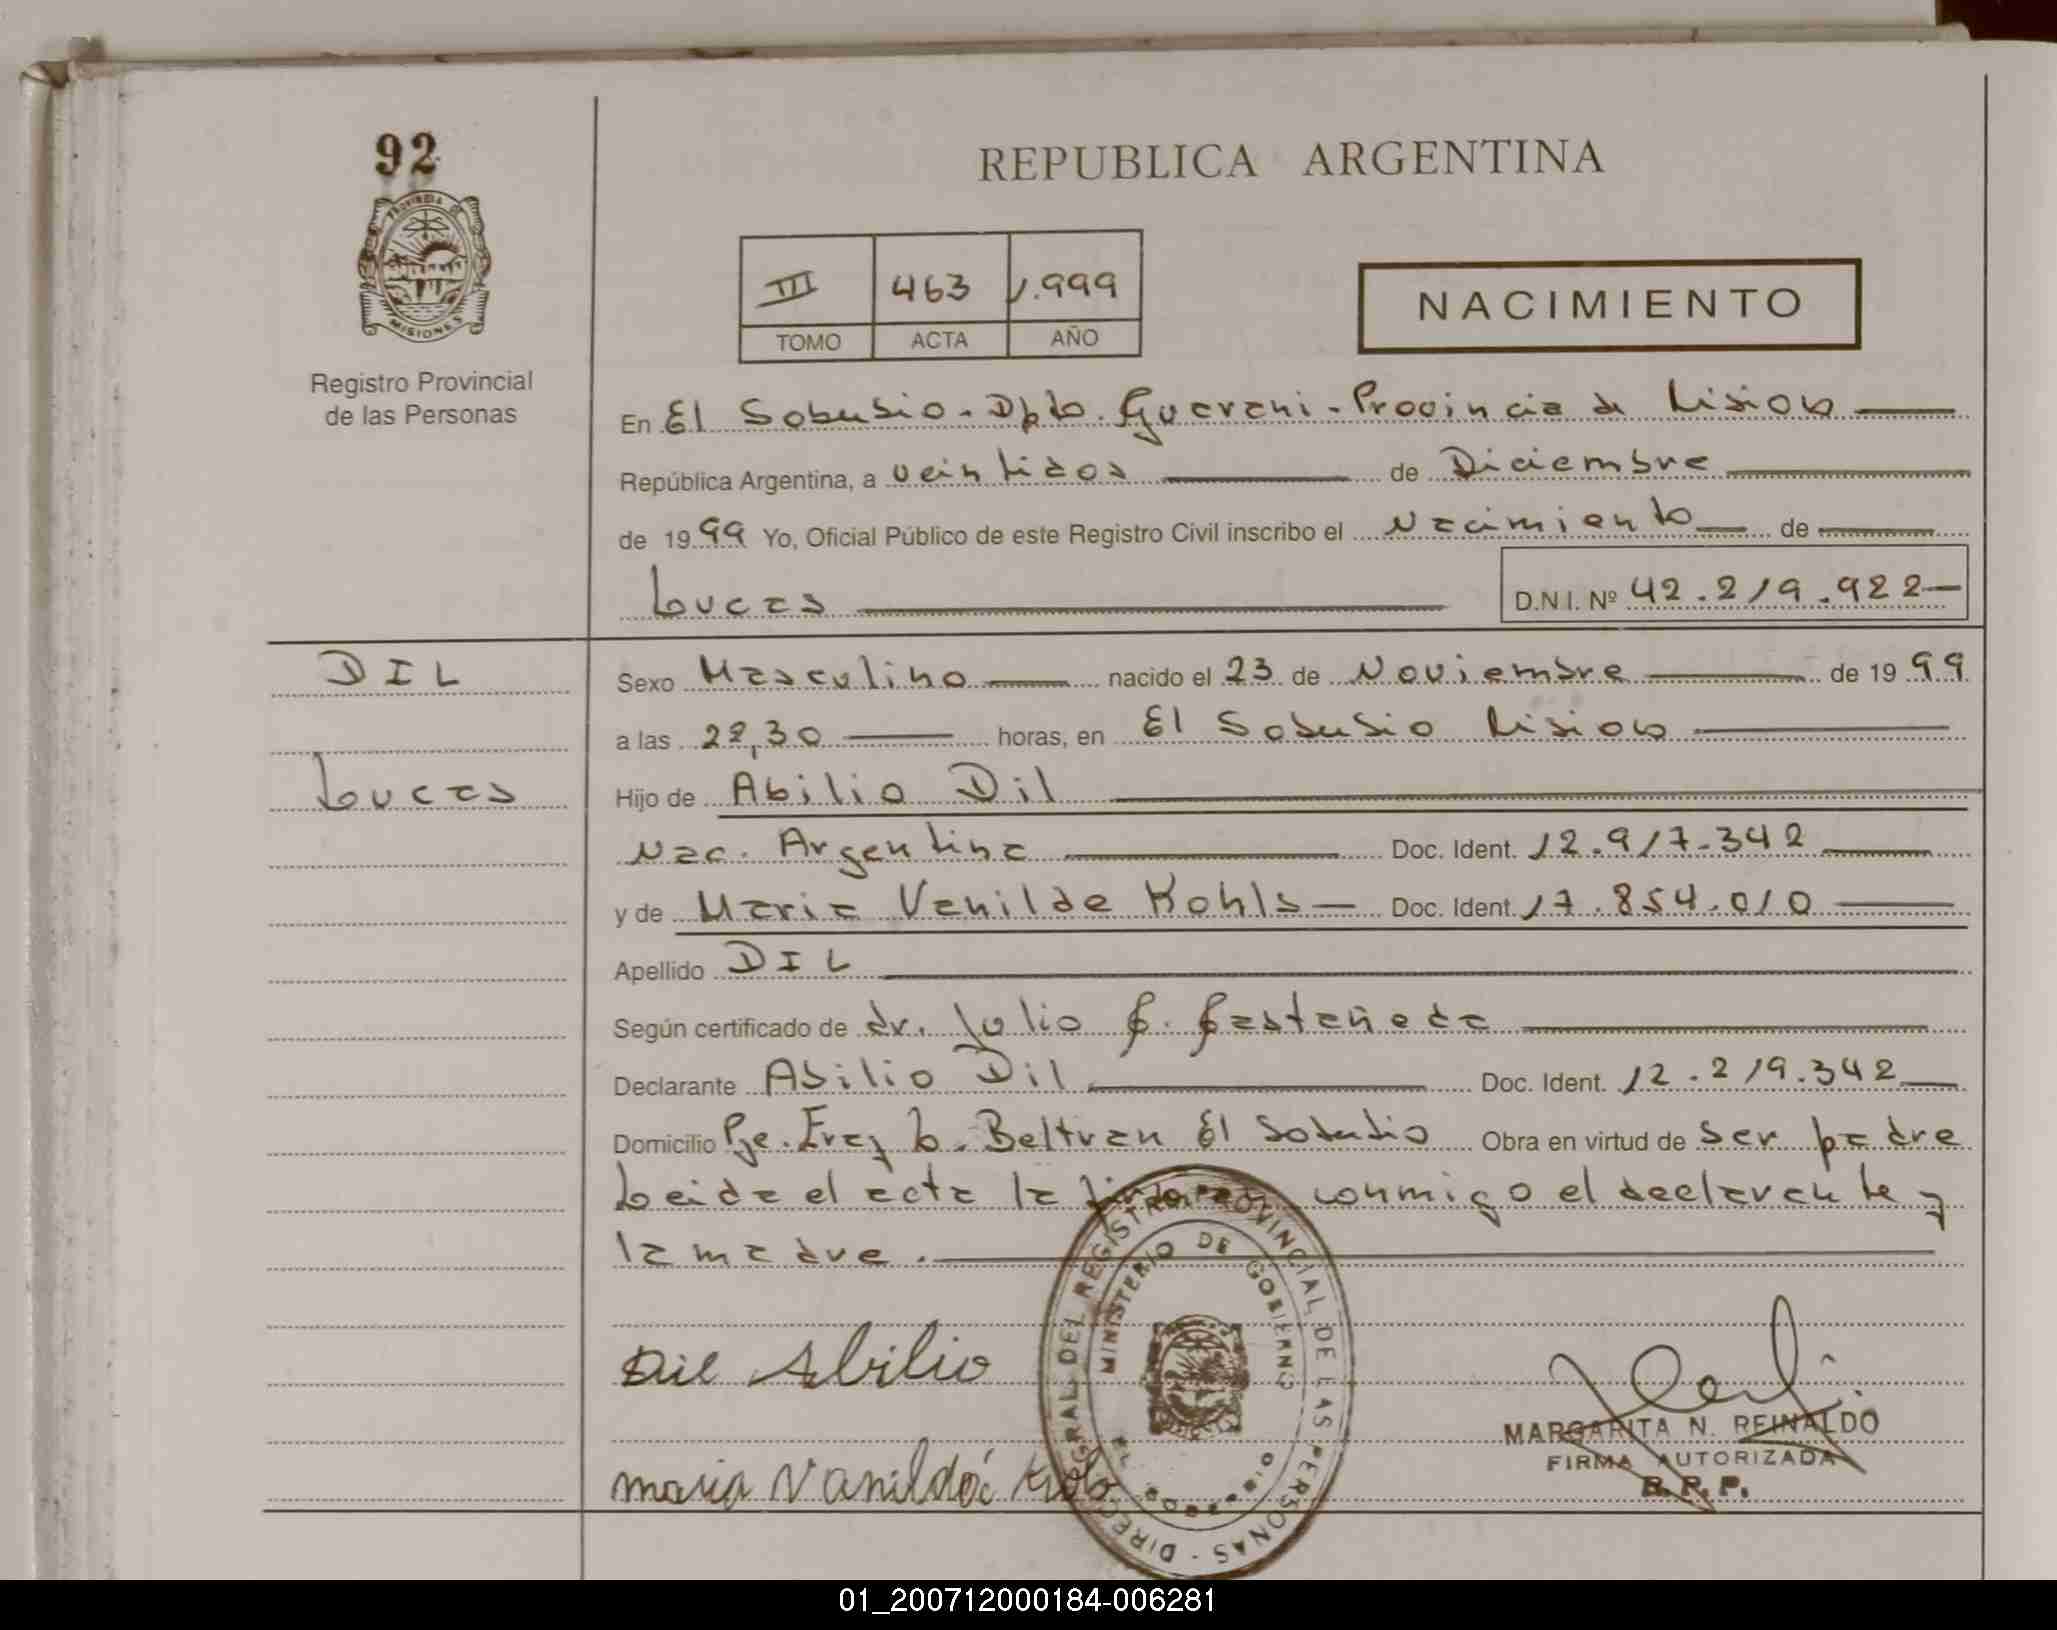 92
REPUBLICA ARGENTINA
PROVINCIA DE
MISIONES
Registro Provincial
de las Personas
III 463 1.999
TOMO ACTA AÑO
NACIMIENTO
En El Soberbio - Dpto. Guarani - Provincia de Misiones
República Argentina, a veintidos de Diciembre
de 1999 Yo, Oficial Público de este Registro Civil inscribo el Nacimiento de
Lucas D.N.I. Nº 42.219.922
DIL
Lucas
Sexo Masculino nacido el 23 de Noviembre de 1999
a las 22,30 horas, en El Soberbio Misiones
Hijo de Abilio Dil
Nac. Argentina Doc. Ident. 12.917.342
y de Maria Vanilde Kohls Doc. Ident. 17.854.010
Apellido DIL
Según certificado de dr. Julio C. Castañeda
Declarante Abilio Dil Doc. Ident. 12.219.342
Domicilio Pje. Fray L. Beltran El Soberbio Obra en virtud de ser padre
Leida el acta la firman conmigo el declarante y
la madre.
Dil Abilio
maria Vanilda
DIRECC GRAL. DEL REGISTRO PROVINCIAL DE LAS PERSONAS
MINISTERIO DE GOBIERNO
MARGARITA N. REINALDO
FIRMA AUTORIZADA
R. P. P.
01_200712000184-006281